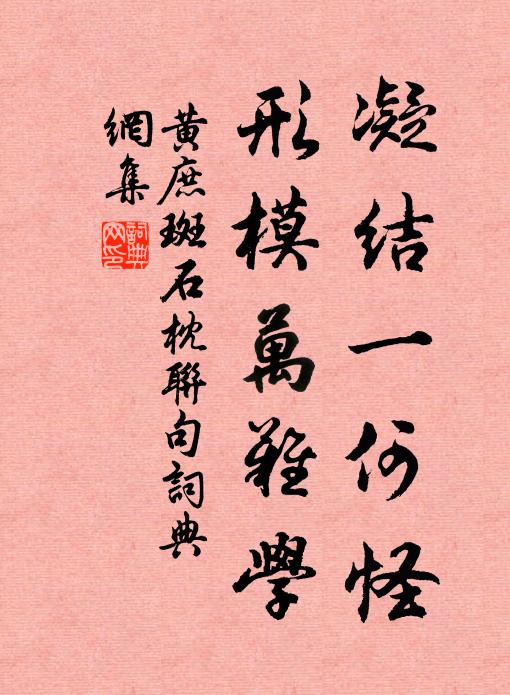 凝結一何怪
形模萬難學
黃庶斑石枕聯句詞典
網集
詞典
网印